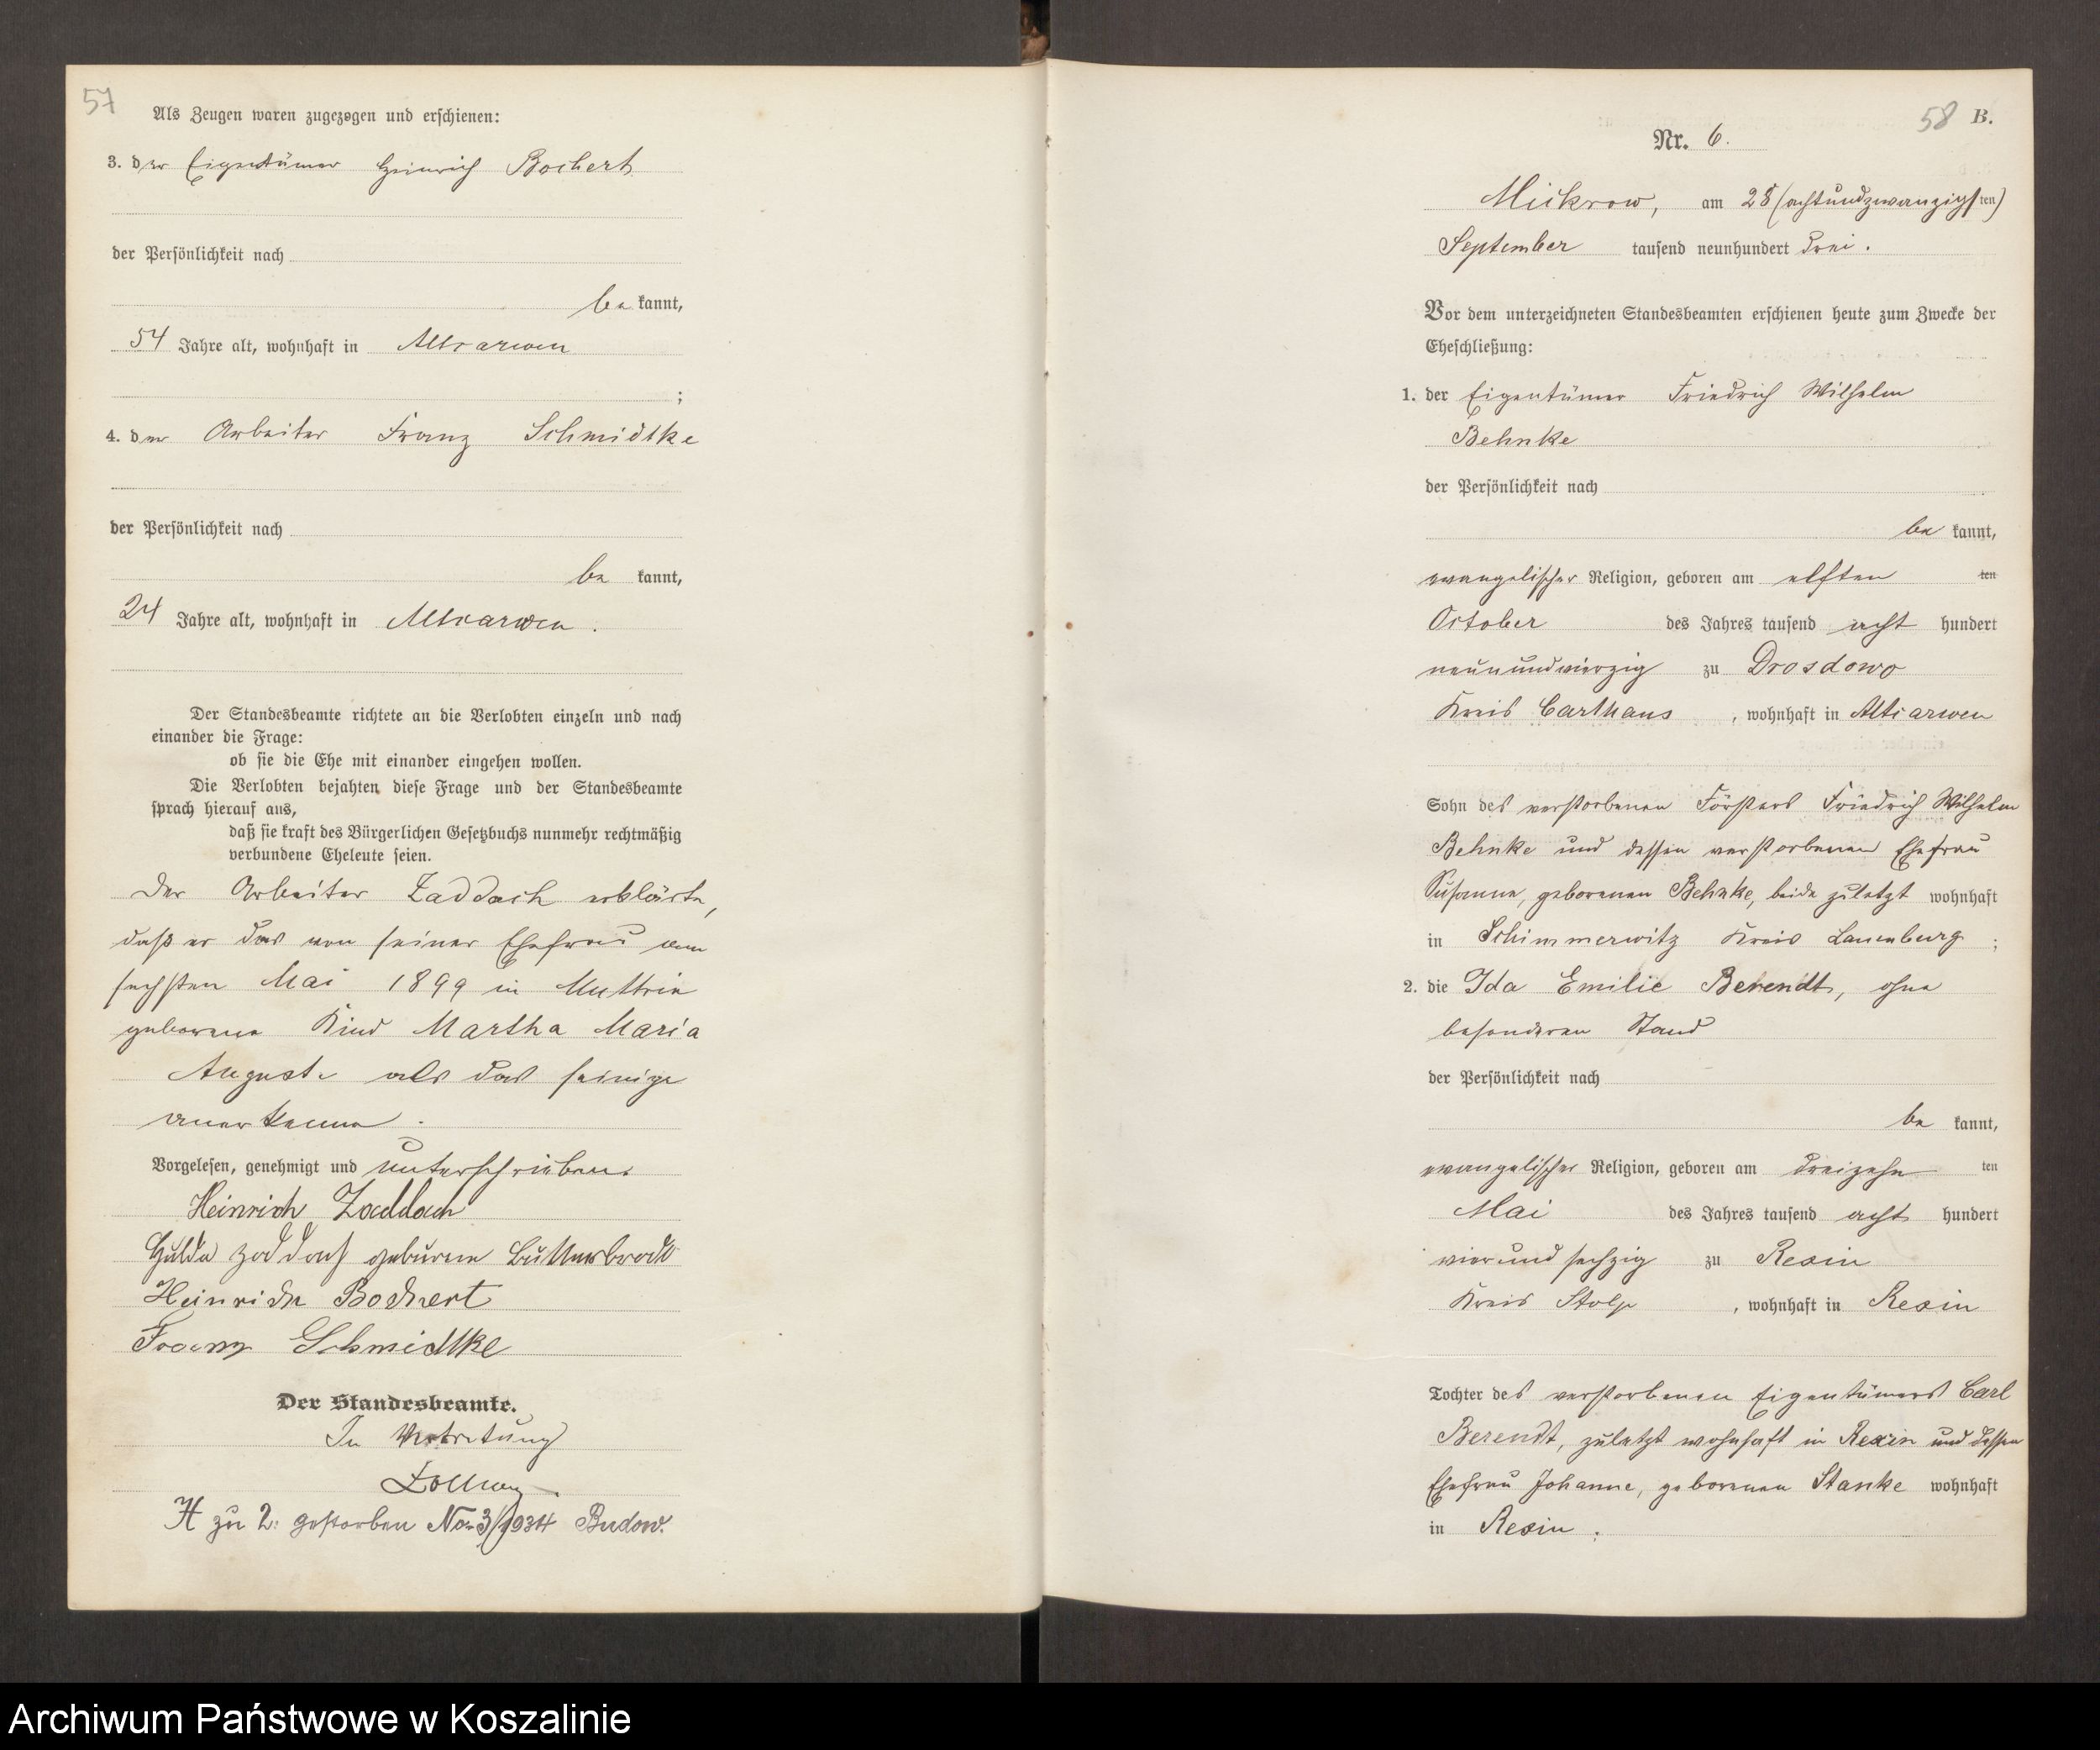 57
Als Zeugen waren zugezogen und erschienen:
3. der Eigentümer Heinrich Bochert
der Persönlichkeit nach
be kannt,
54 Jahre alt, wohnhaft in Altjarwen
;
4. der Arbeiter Franz Schmidtke
der Persönlichkeit nach
be kannt,
24 Jahre alt, wohnhaft in Altjarwen.
Der Standesbeamte richtete an die Verlobten einzeln und nach
einander die Frage:
ob sie die Ehe mit einander eingehen wollen.
Die Verlobten bejahten diese Frage und der Standesbeamte
sprach hierauf aus,
daß sie kraft des Bürgerlichen Gesetzbuchs nunmehr rechtmäßig
verbundene Eheleute seien.
Der Arbeiter Zaddach erklärte,
daß er das von seiner Ehefrau am
sechsten Mai 1899 in Muttrin
geborene Kind Martha Maria
Auguste als das seinige
anerkenne.
Vorgelesen, genehmigt und unterschrieben.
Heinrich Zaddach
Hulda Zaddach geborene Butterbrodt
Heinrich Bochert
Franz Schmidtke
Der Standesbeamte.
In Vertretung
H zu 2: gestorben No 3/1934 Budow.
58 B.
Nr. 6.
Mickrow, am 28 (achtundzwanzigsten)
September tausend neunhundert drei.
Vor dem unterzeichneten Standesbeamten erschienen heute zum Zwecke der
Eheschließung:
1. der Eigentümer Friedrich Wilhelm
Behnke
der Persönlichkeit nach
be kannt,
evangelischer Religion, geboren am elften ten
October des Jahres tausend acht hundert
neunundvierzig zu Drosdowo
Kreis Carthaus, wohnhaft in Altjarwen
Sohn des verstorbenen Försters Friedrich Wilhelm
Behnke und dessen verstorbenen Ehefrau
Susanne, geborenen Behnke, beide zuletzt wohnhaft
in Schimmerwitz Kreis Lauenburg;
2. die Ida Emilie Berendt, ohne
besonderen Stand
der Persönlichkeit nach
be kannt,
evangelischer Religion, geboren am dreizehn ten
Mai des Jahres tausend acht hundert
vierundsechzig zu Rexin
Kreis Stolp, wohnhaft in Rexin
Tochter des verstorbenen Eigentümers Carl
Berendt, zuletzt wohnhaft in Rexin und dessen
Ehefrau Johanne, geborenen Stanke wohnhaft
in Rexin.
Archiwum Państwowe w Koszalinie